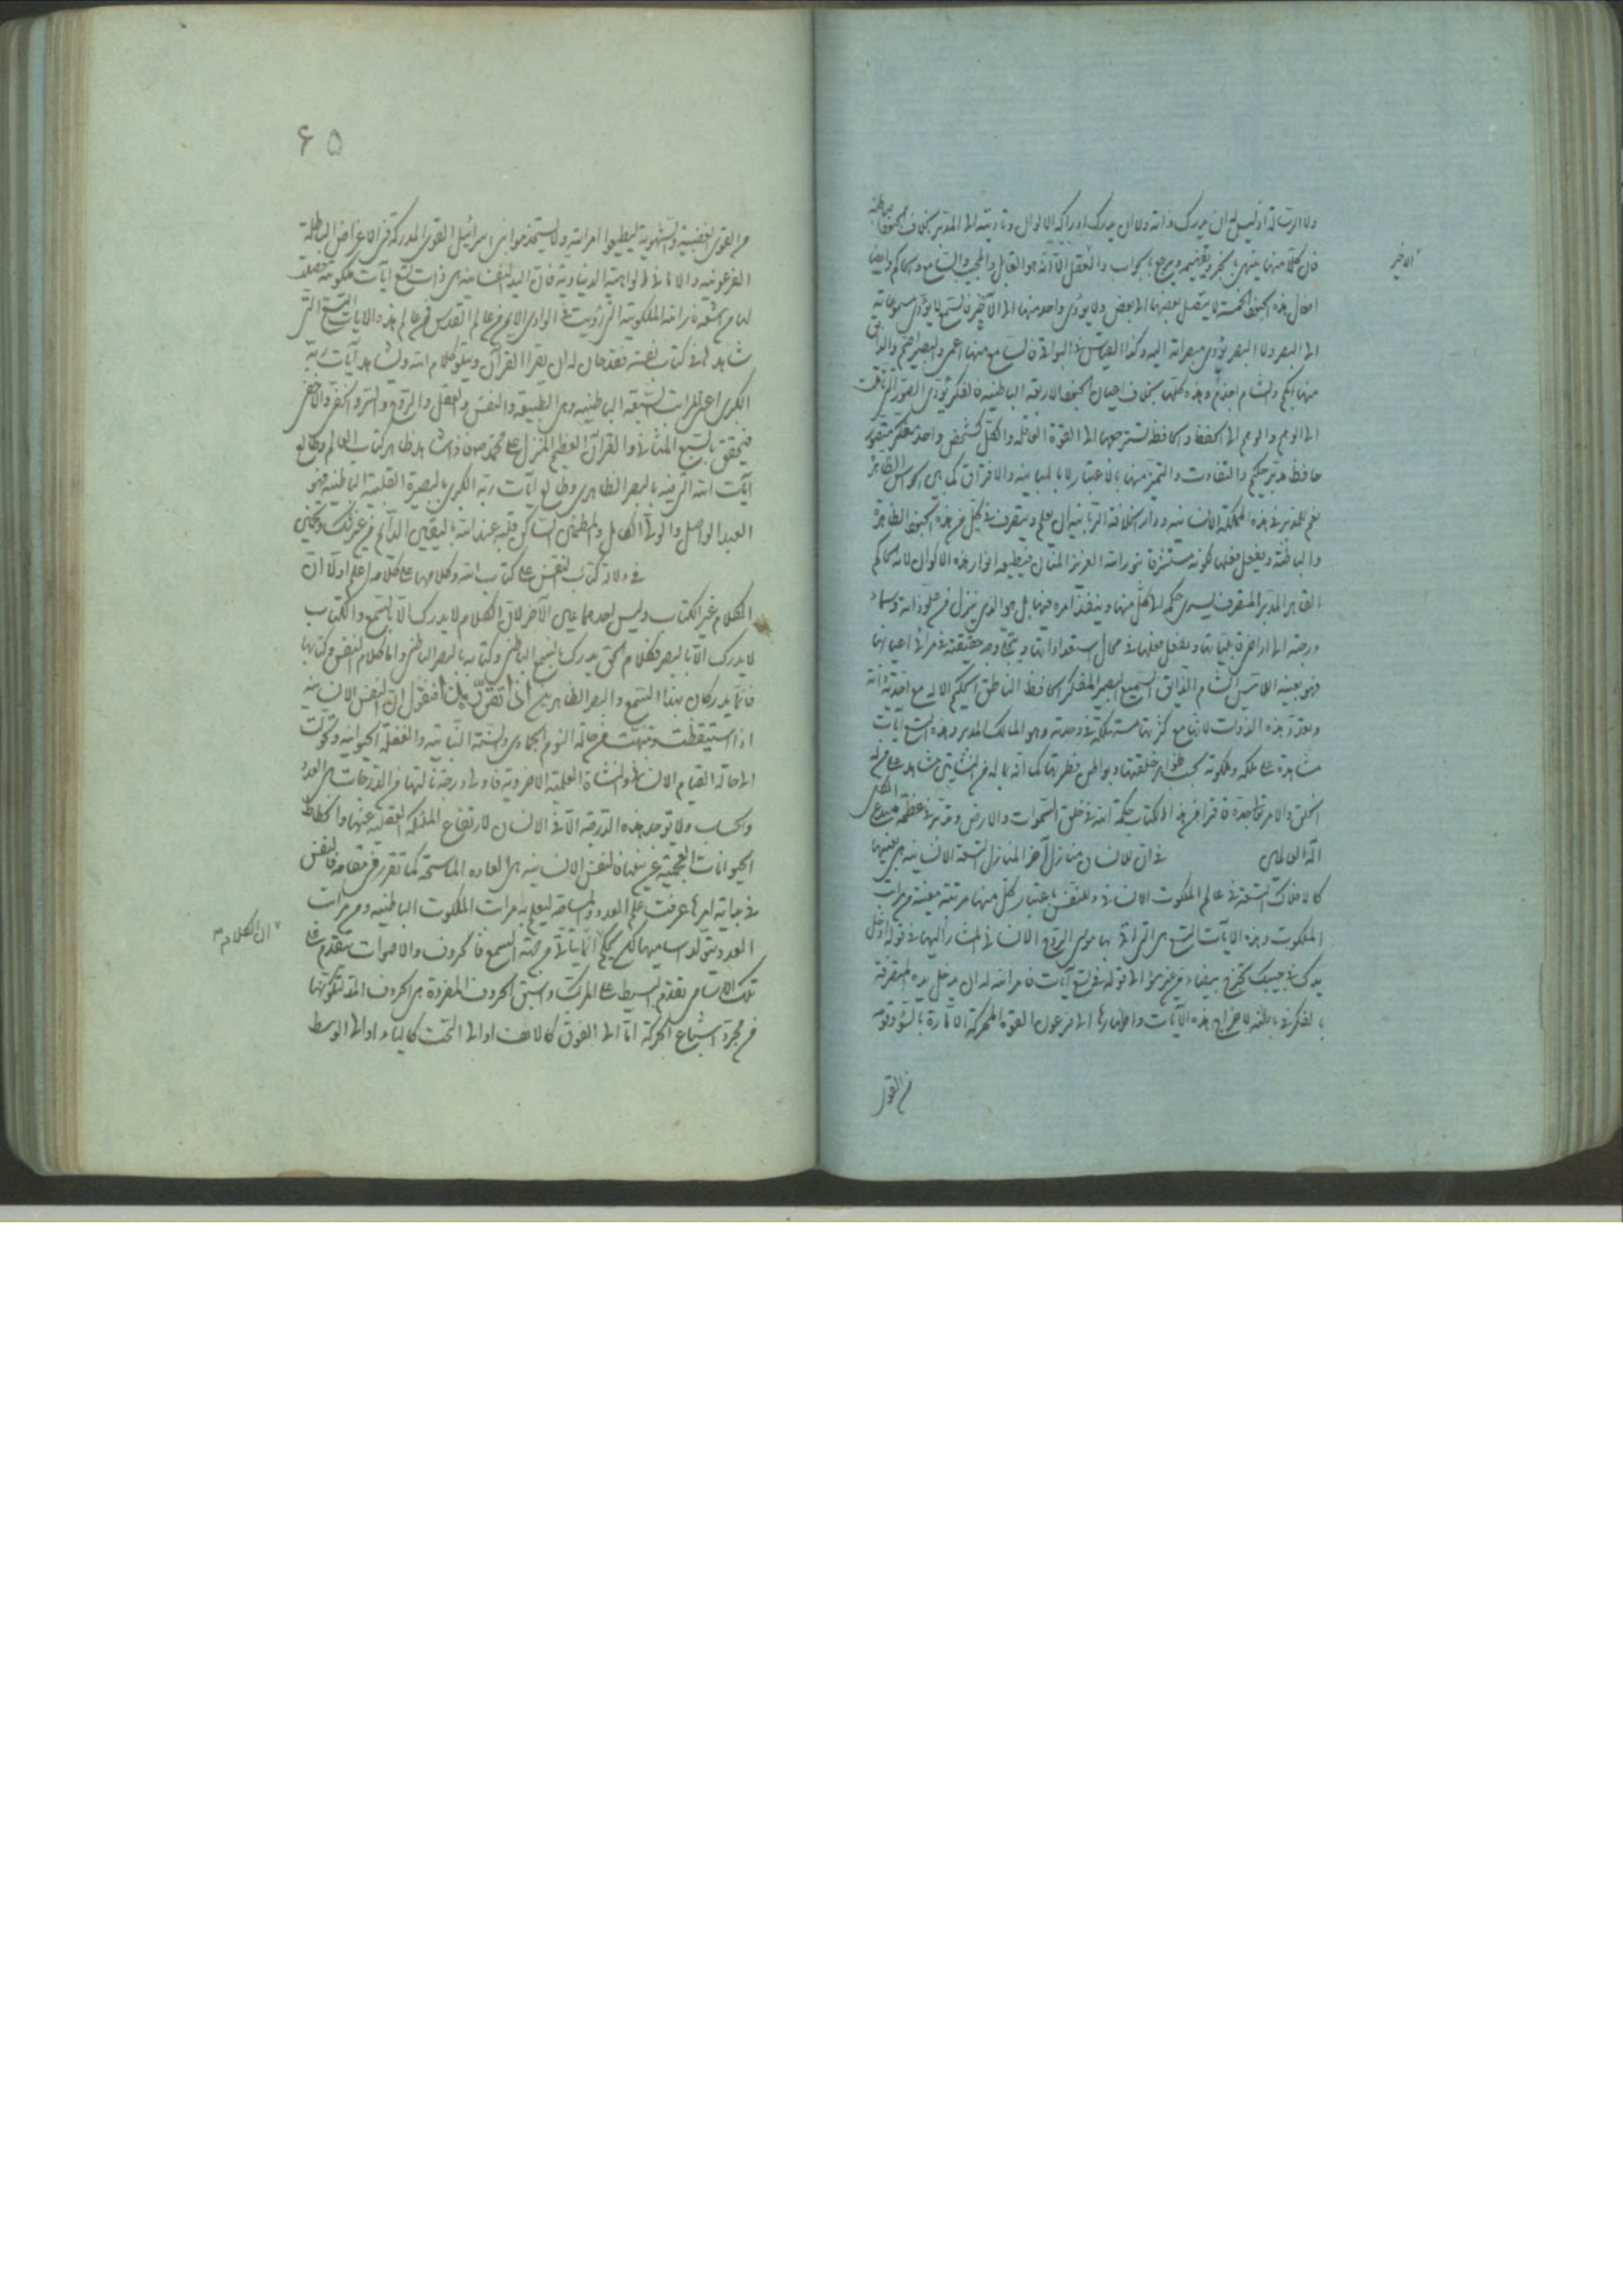 ولا ارساله اذ ليس له ان يدرك ذاته ولا ان يدرك ادراكه الا لوال وتاديته الى المدبر بخلاف الجنود الباطنة
فان كلا منها ينهى بالخبر ويرجع بالجواب والعقل الا انه هو القابل والمجيب السامع والحاكم وايضا
الاخير
افعال هذه الجنود الخمسة لا يتصل بعضها الى بعض ولا يؤدى واحد منها الى الآخر فالسمع لا يؤدى مسموعاته
الى البصر ولا البصر يؤدى مبصراته اليه وكذا القياس فى البواقى فالسامع منها اعمى والبصير اصم والذائق
منها ابكم والشام اجذم وهذه كلها بخلاف اعيان الجنود الاربعة الباطنية فالفكر يؤدى الصور
الى الوهم والوهم الى الحفظ والحافظة تسترجعها الى القوة العاقلة والكل كشخص واحد متفكر متصور
حافظ مدبر حكيم والتفاوت والتميز منها بالاعتبار لا بالمباينة والافتراق كما هى الحواس الظاهر
نعم للمدبر فى هذه المملكة الانسانية ودار الخلافة الربانية ان يعلم ويتصرف فى كل من هذه الجنود الظاهرة
والباطنة ويفعل فعلها لكونه مستشرقا بنور الله العزيز المنان فيطيعه انوار هذه الاكوان لانه الحاكم
القاهر المدبر المتصرف يسرى حكمه الى كل منها وينفذ امره فيها بل هو الذى ينزل من علو ذاته وسماء
درجته الى اراضى قابلياتها ويفعل فعلها فى محال استعداداتها ويتجلى وجه حقيقته فى مرائى اعيانها
فهو بعينه اللامس الشام الذايق السميع البصير المتفكر الحافظ الناطق الحكيم الا انه مع احدية ذاته
وتعدد هذه الذوات لانها مع كثرتها مستهلكة فى وحدته وهو المالك المدبر وهذه التسع آيات
مشاهدة على ملكه وملكوته بحسب ظواهر خلقتها وبواطن فطرتها كما انه بما له من النشأتين مشاهد على
الخلق والامر فاقرأ من هذا الكتاب حكمة الله فى خلق السموات والارض وتدبر فى عظمة مبدع الكل
اله العالمين فى ان للانسان منازل آخر المنازل التسعة الانسانية هى بعينها
كالافلاك التسعة فى عالم الملكوت الانسانى وللنفس باعتبار كل منها مرتبة معينة من مراتب
الملكوت وهذه الآيات التسع هى التى اتى بها موسى الروح الانسانى المشار اليها فى قوله ادخل
يدك فى جيبك تخرج بيضاء من غير سوء الى قوله فى تسع آيات فامر الله له ان يدخل يده المتصرفة
بالفكر فى باطنه لاخراج هذه الآيات واظهارها الى فرعون القوة المحركة الامارة بالسوء وقومه
من القوى
۶۵
من القوى الغضبية والشهوية ليطيعوا امر الله ولا يستخدموا بنى اسرائيل القوى المدركة فى الاغراض الباطلة
الفرعونية والامانى الواهية الدنياوية فان اليد النفسانية هى ذات تسع آيات ملكوتية حصلت
لها من اشعة نار الله الملكوتية التى رؤيت فى الوادى الايمن من عالم القدس فمن عالم هذه الآيات التسع التى
شاهدها فى كتاب نفسه فقد حان له ان يقرأ القرآن ويتلو كلام الله ويشاهد آيات ربه
الكبرى اعنى المراتب السبعة الباطنية وهى الطبيعة والنفس والعقل والروح والسر والخفى والاخفى
فيتحقق بالسبع المثانى والقرآن العظيم المنزل على محمد ص فاذا شاهد ظاهر كتاب العالم وطالع
آيات الله التى فيه بالبصر الظاهرى وطالع آيات ربه الكبرى بالبصيرة القلبية الباطنية فهو
العبد الواصل والولى الكامل والمطمئن الساكن قلبه عند الله باليقين الدائم من غير شك وتخمين
فى دلالة كتاب النفس على كتاب الله وكلامها على كلامه اعلم اولا ان
الكلام غير الكتاب وليس احدهما عين الآخر لان الكلام لا يدرك الا بالسمع والكتاب
لا يدرك الا بالبصر فكلام الحق يدرك بالسمع الباطن وكتابه بالبصر الباطن واما كلام النفس وكتابها
فانما يدركان بهذا السمع والبصر الظاهرين اذا تقرر هذا فنقول ان النفس الانسانية
اذا استيقظت وتنبهت من حالة النوم الجمادى والسنة النباتية والغفلة الحيوانية وتحولت
الى حالة القيام الانسانى والنشأة العلمية الاخروية فاول درجة نالتها من الدرجات هى العدد
والحساب ولا توجد هذه الدرجة الا فى الانسان لارتفاع الملئكة العقلية عنها وانحطاط
الحيوانات العجمية عن نيلها فالنفس الانسانية هى العادة الماسحة كما تقرر فى مقامه فالنفس
فى بداية امرها عرفت علم العدد والمساحة ليعلم به مراتب الملكوت الباطنية ومن مراتب
العدد يتولد اساميها لكن لكم انما يتأتى من جهة السمع فالحروف والاصوات متقدم على
ان الكلام
تلك الاسامى تقدم البسيط على المركب واسبق الحروف المفردة هى الحروف المد لتكونها
من مجرد اشباع الحركة اما الى الفوق كالالف او الى التحت كالياء او الى الوسط